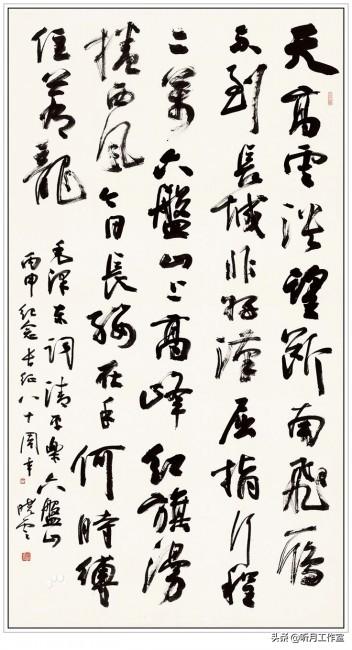 天高雲淡望断南飛雁
不到長城非好漢屈指行程
二萬六盤山上高峰紅旗漫
捲西風今日長纓在手何時縛
住蒼龍
毛澤东詞清平樂六盤山
丙申纪念长征八十周年 晓雲
头条 @听月工作室